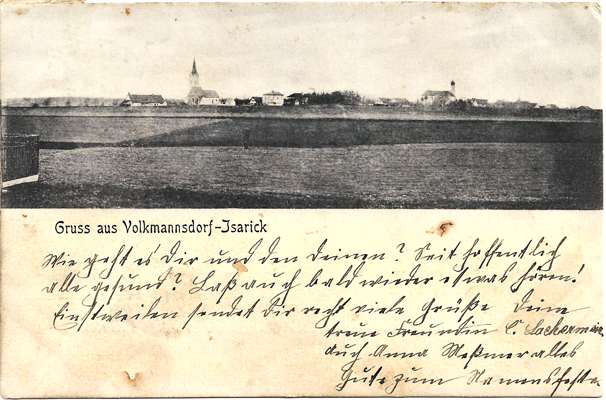 Gruss aus Volkmannsdorf-Isarick
Wie geht es Dir und den Deinen? Seit hoffentlich
alle gesund? Laß auch bald wieder etwas hören!
Einstweilen sendet Dir recht viele Grüße Deine
treue Freundin C. Lachermeier
auch Anna Meßmer alles
Gute zum Namensfeste